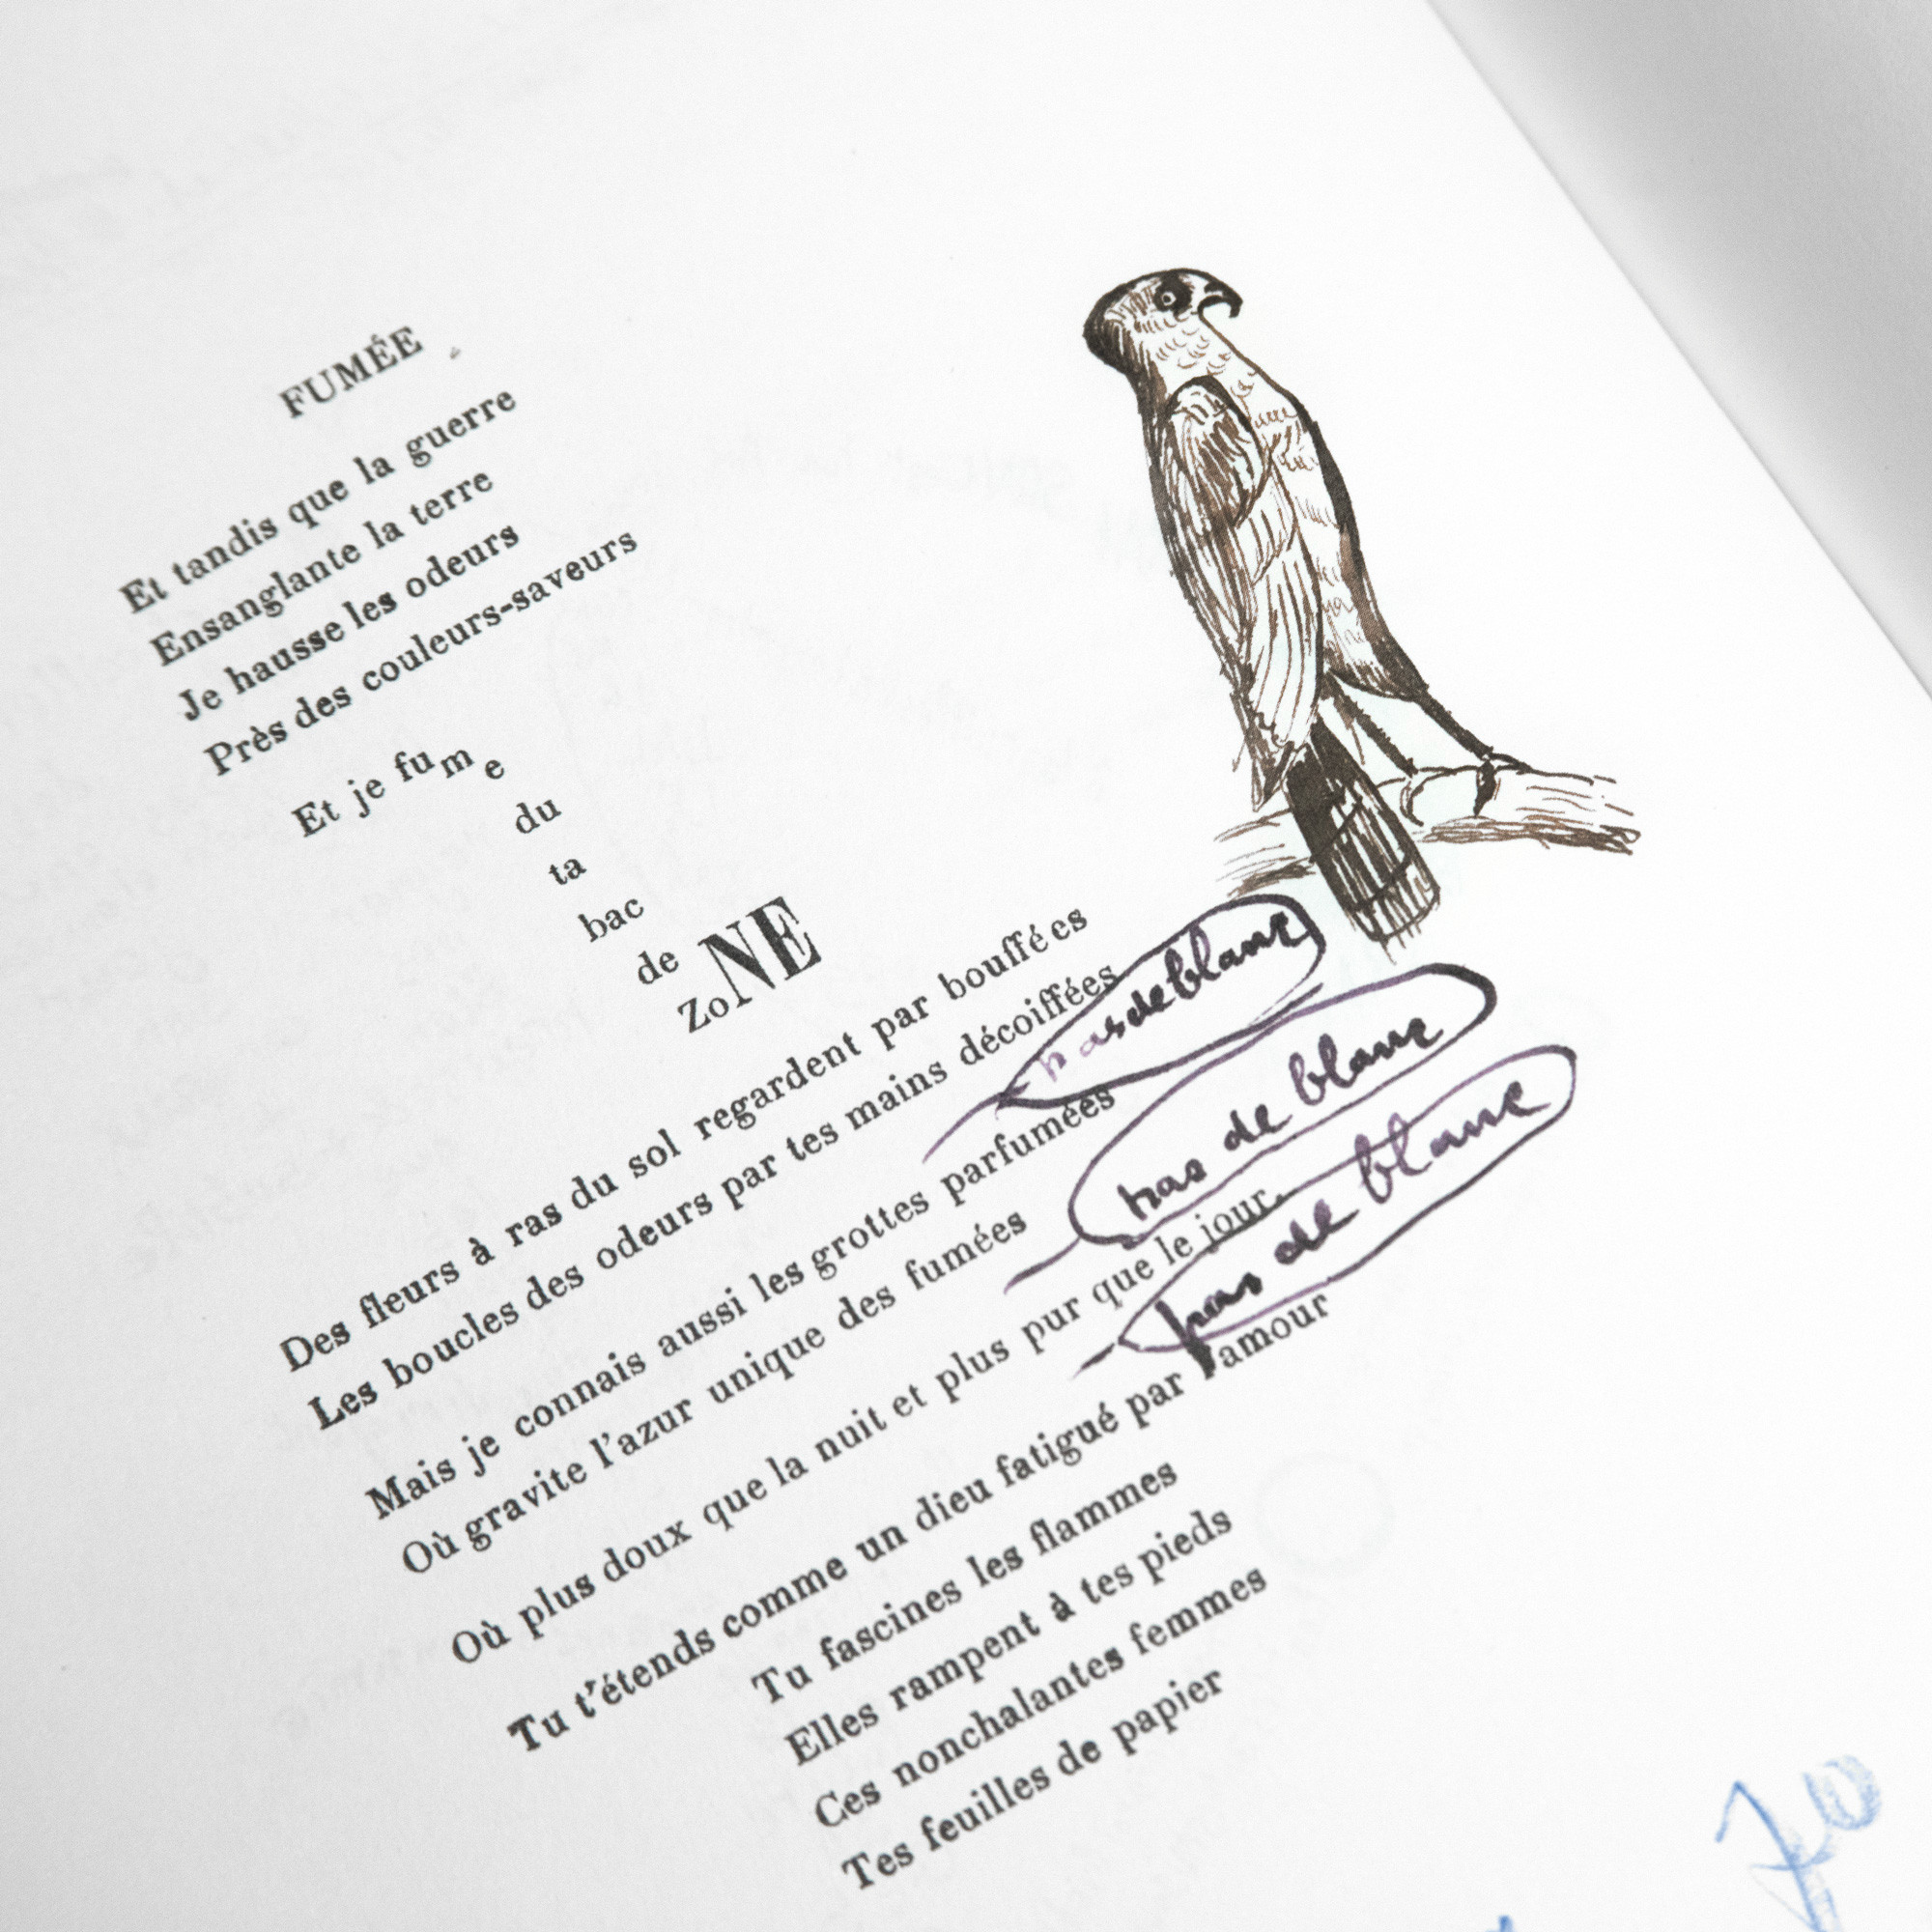 FUMÉE
Et tandis que la guerre
Ensanglante la terre
Je hausse les odeurs
Près des couleurs-saveurs
Et je fume
du
ta
bac
de
ZoNE
Des fleurs à ras du sol regardent par bouffées
Les boucles des odeurs par tes mains décoiffées
Mais je connais aussi les grottes parfumées
Où gravite l'azur unique des fumées
Où plus doux que la nuit et plus pur que le jour
Tu t'étends comme un dieu fatigué par l'amour
Tu fascines les flammes
Elles rampent à tes pieds
Ces nonchalantes femmes
Tes feuilles de papier
pas de blanc
pas de blanc
pas de blanc
70